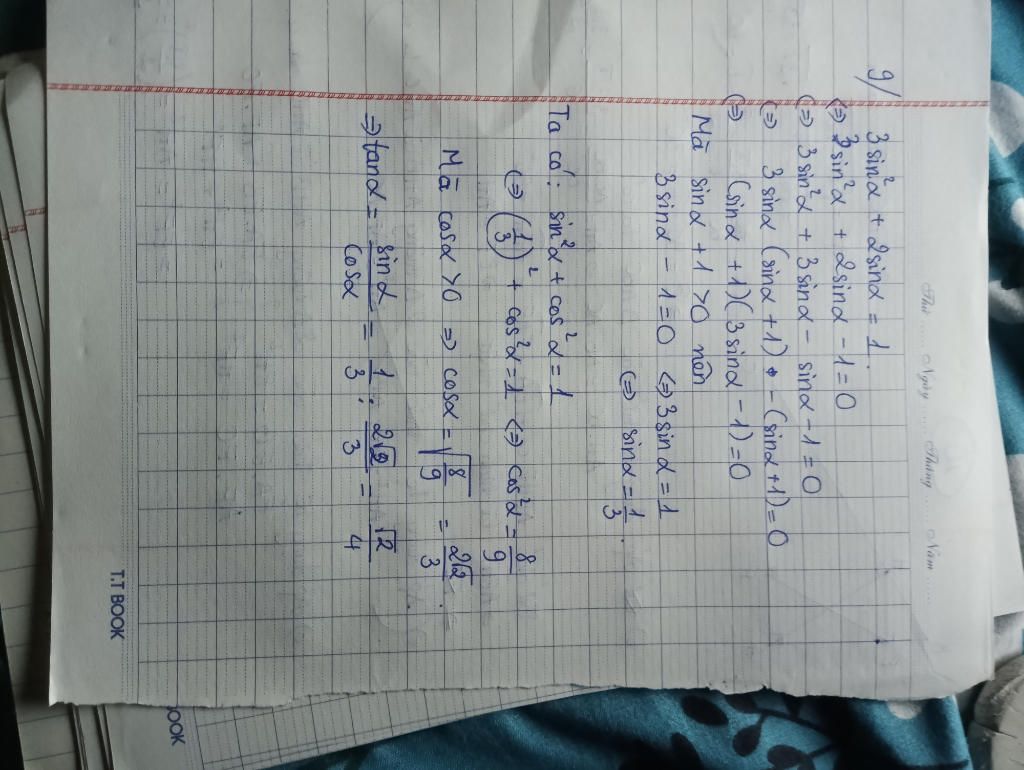 Thứ ....... Ngày ........ Tháng ........ Năm .......
9/ 3 sin²α + 2sinα = 1.
(=) 3sin²α + 2sinα - 1 = 0
(=) 3 sin²α + 3 sinα - sinα - 1 = 0
(=) 3 sinα (sinα + 1) - (sinα + 1) = 0
(=) (sinα + 1)(3 sinα - 1) = 0
Mà sinα + 1 > 0 nên
3 sinα - 1 = 0 (=) 3 sinα = 1
(=) sinα = 1/3.
Ta có: sin²α + cos²α = 1
(=) (1/3)² + cos²α = 1 (=) cos²α = 8/9
Mà cosα > 0 => cosα = √(8/9) = 2√2/3.
=> tanα = sinα/cosα = 1/3 : 2√2/3 = √2/4
T.T BOOK
BOOK